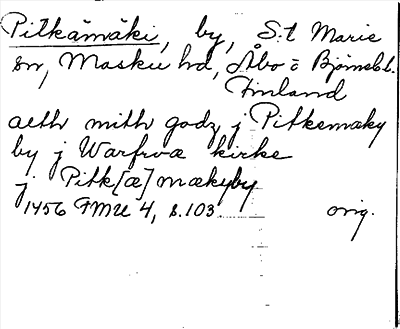 Pitkämäki, by, S:t Marie
sn, Masku hd, Åbo o Bjbgs l.
Finland
aeth mith godz j Pitkemæky
by j Warfrvæ kirke
j. Pitk[æ]mækyby
1456 FMU 4, s. 103 orig.